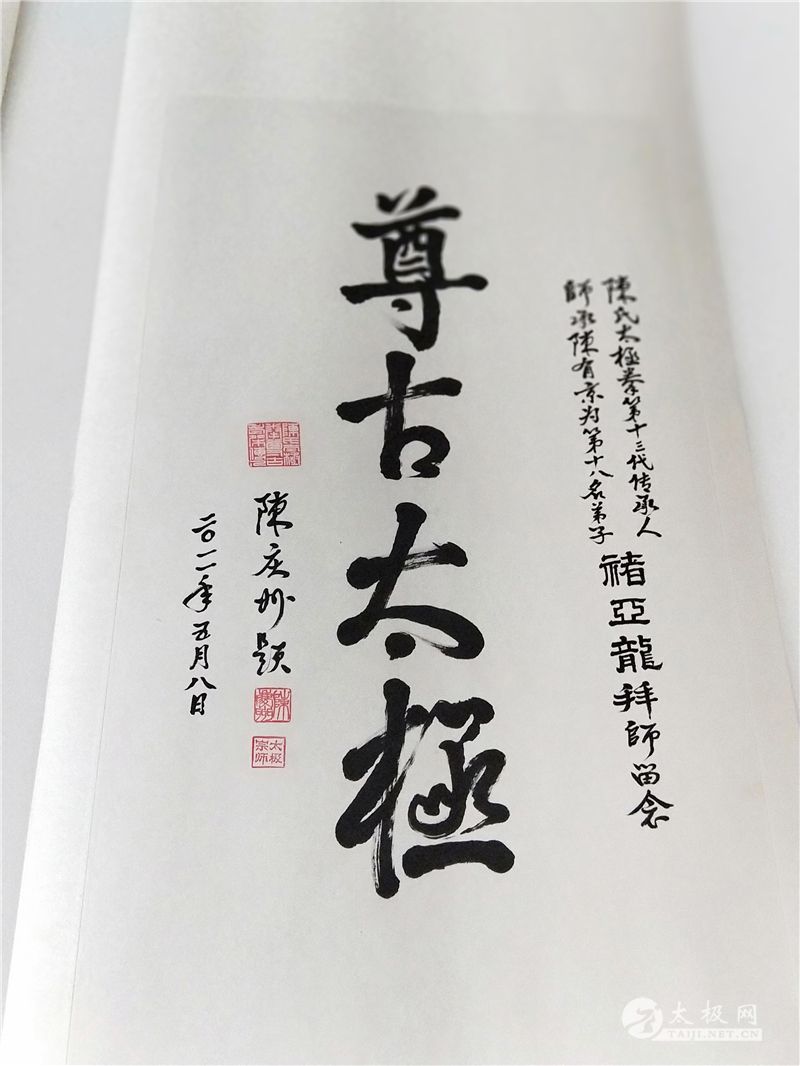 陳氏太極拳第十三代传承人
師承陳有京为第十八名弟子
禇亞龍拜師留念
尊古太極
陳庆州題
二〇一一年五月八日
太极
宗师
太极网
TAIJI.NET.CN